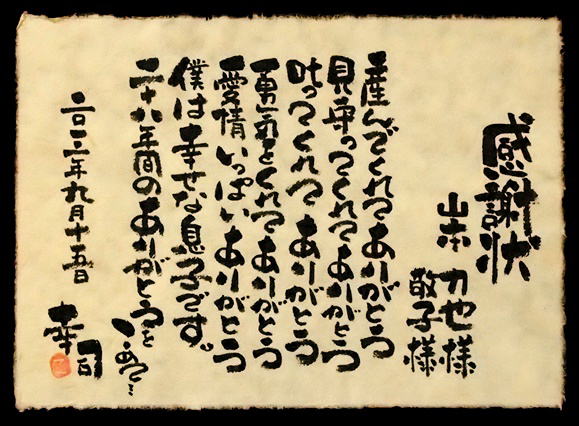 感謝状
山本 力也様
敬子様
産んでくれてありがとう
見守ってくれてありがとう
叱ってくれてありがとう
勇気をくれてありがとう
愛情いっぱいありがとう
僕は幸せな息子です。
二十八年間のありがとうを
こめて…
二〇一二年九月十五日
幸司